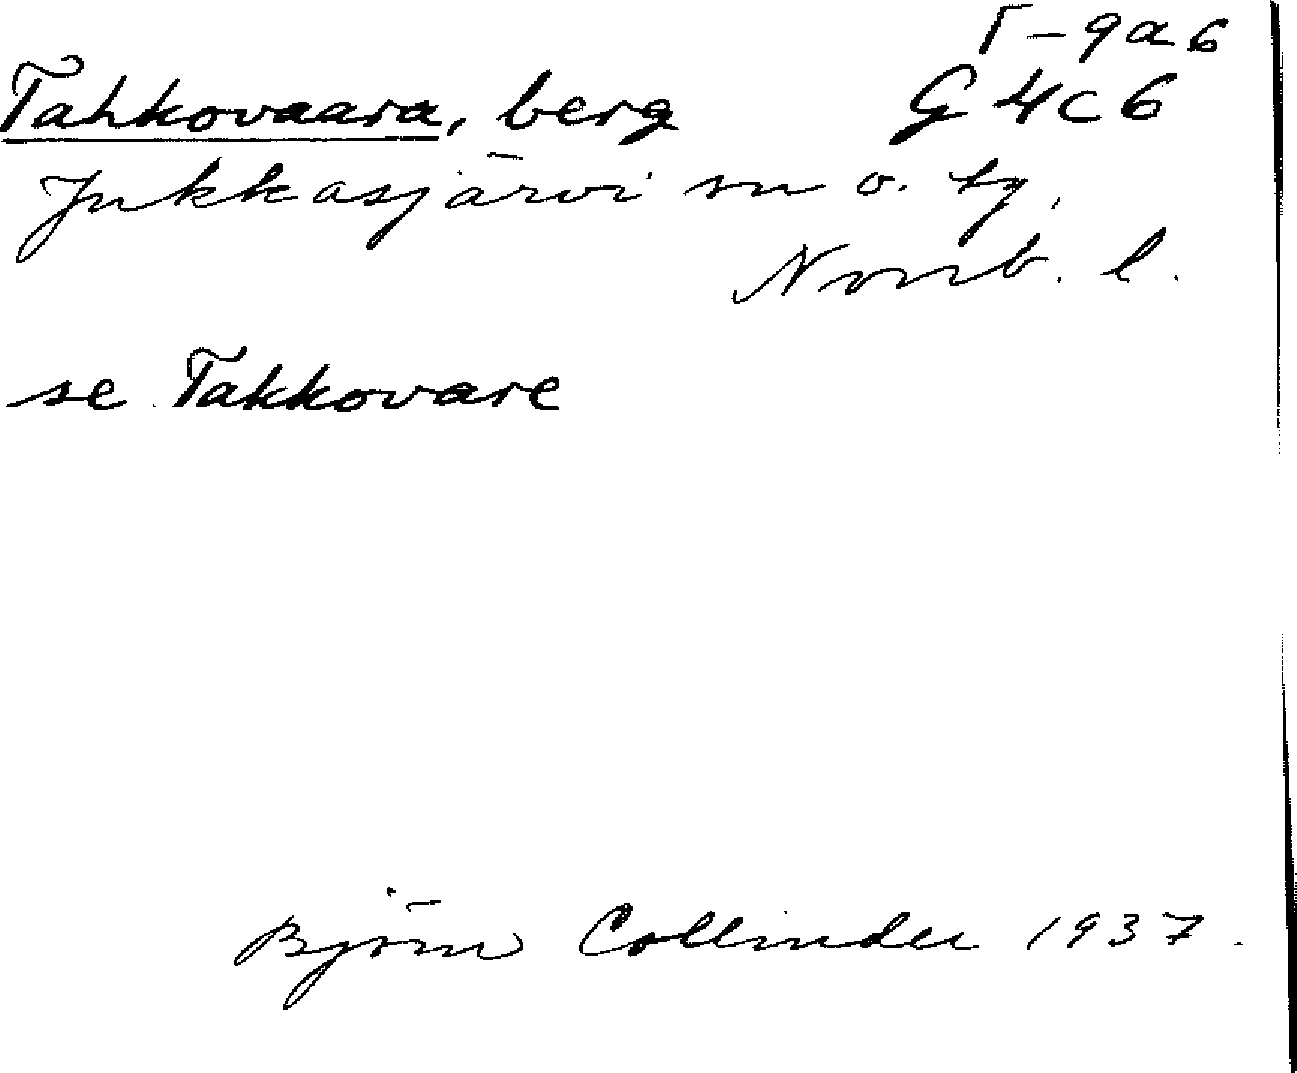 Γ-9a6
Tahkovaara, berg G4c6
Jukkasjärvi sn o. tg,
Norrb. l.
se Takkovare
Björn Collinder 1937.